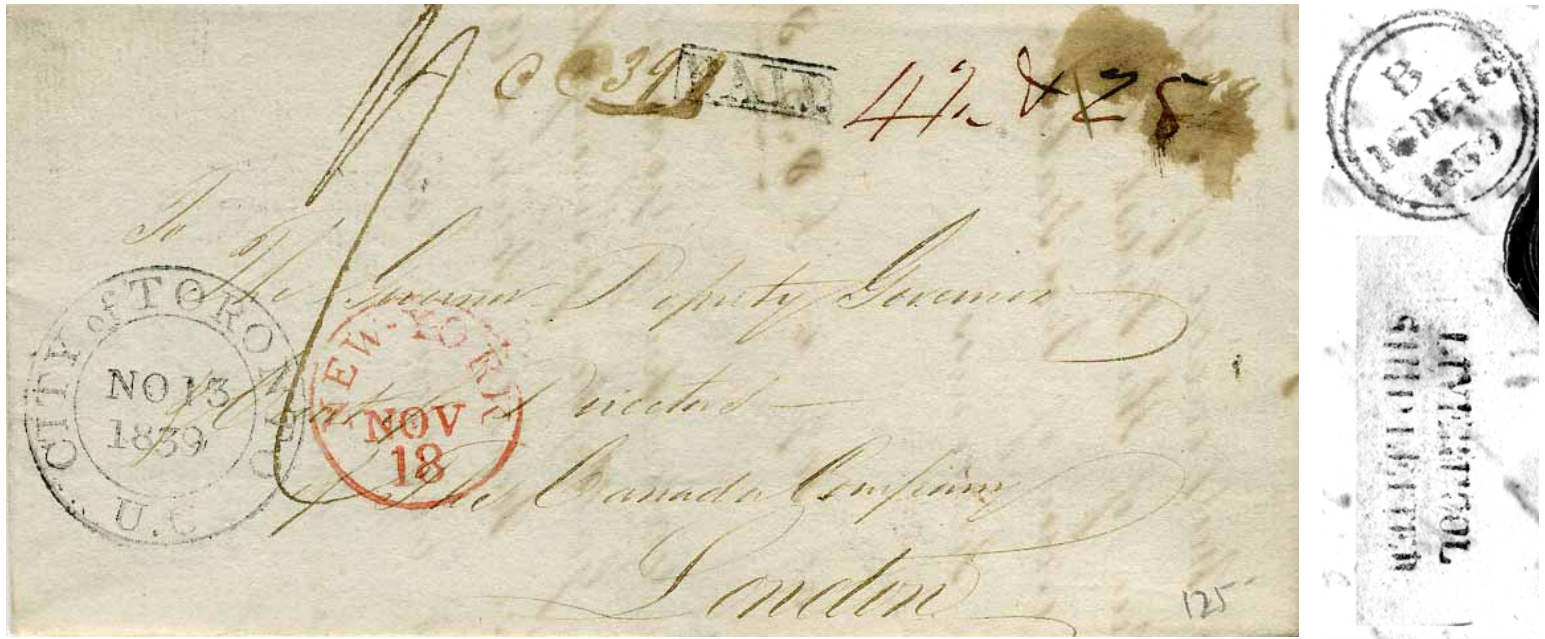 C C 39
PAID
4½ & 25
To
The Governor Deputy Governor
Directors
of the Canada Company
London
CITY of TORONTO
NO 13
1839
U.C
NEW-YORK
NOV
18
125
B
16 DE 16
1839
LIVERPOOL
SHIP LETTER